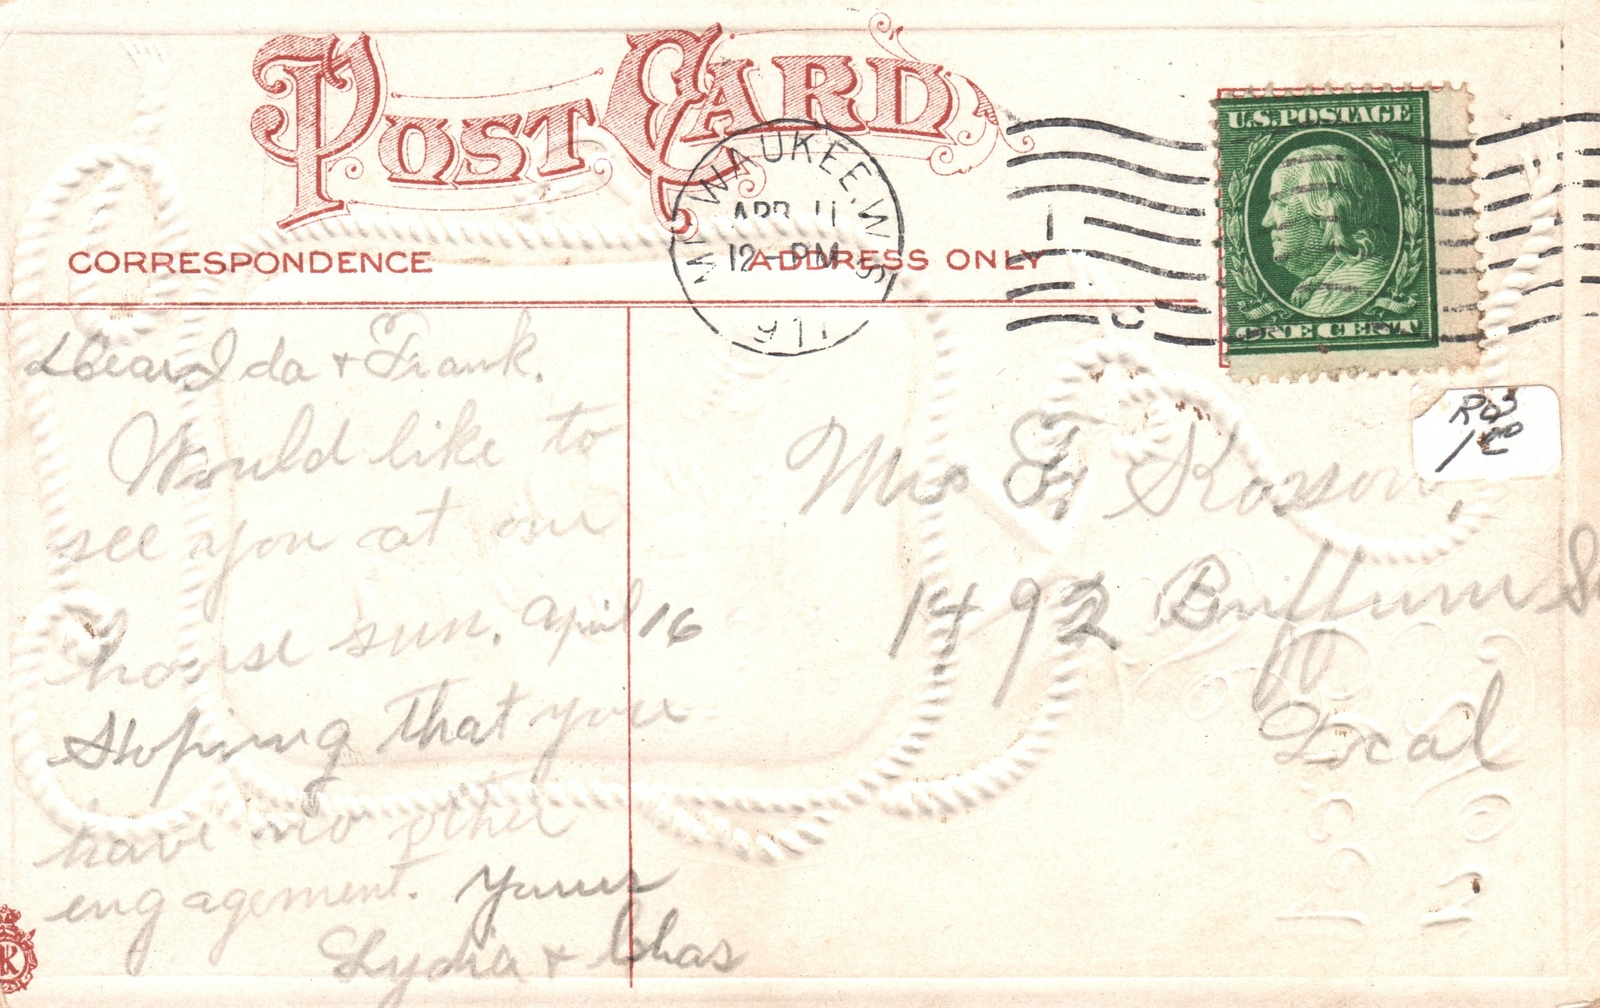 POST CARD
MILWAUKEE, WIS
APR 11
12 - PM
1911
U.S. POSTAGE
ONE CENT
CORRESPONDENCE
ADDRESS ONLY
Dear Ida + Frank.
Would like to
see you at our
house sun. April 16
Hoping that you
have no other
engagement. Yours
Lydia + Chas
Mrs F
1492 Buffum St
Local
1.00
K